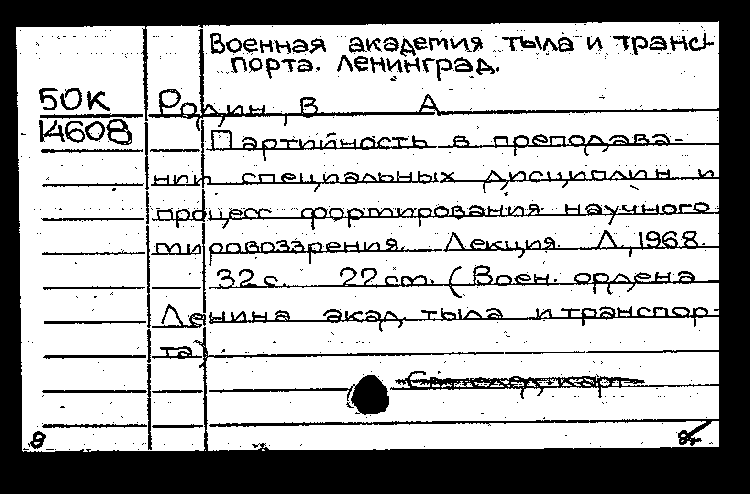 Военная академия тыла и транс-
порта. Ленинград.
50К Родин, В. А.
14608 Партийность в преподава-
нии специальных дисциплин и
процесс формирования научного
мировоззрения. Лекция. Л., 1968.
32 с. 22 cm. (Воен. ордена
Ленина акад. тыла и транспор-
та).
8